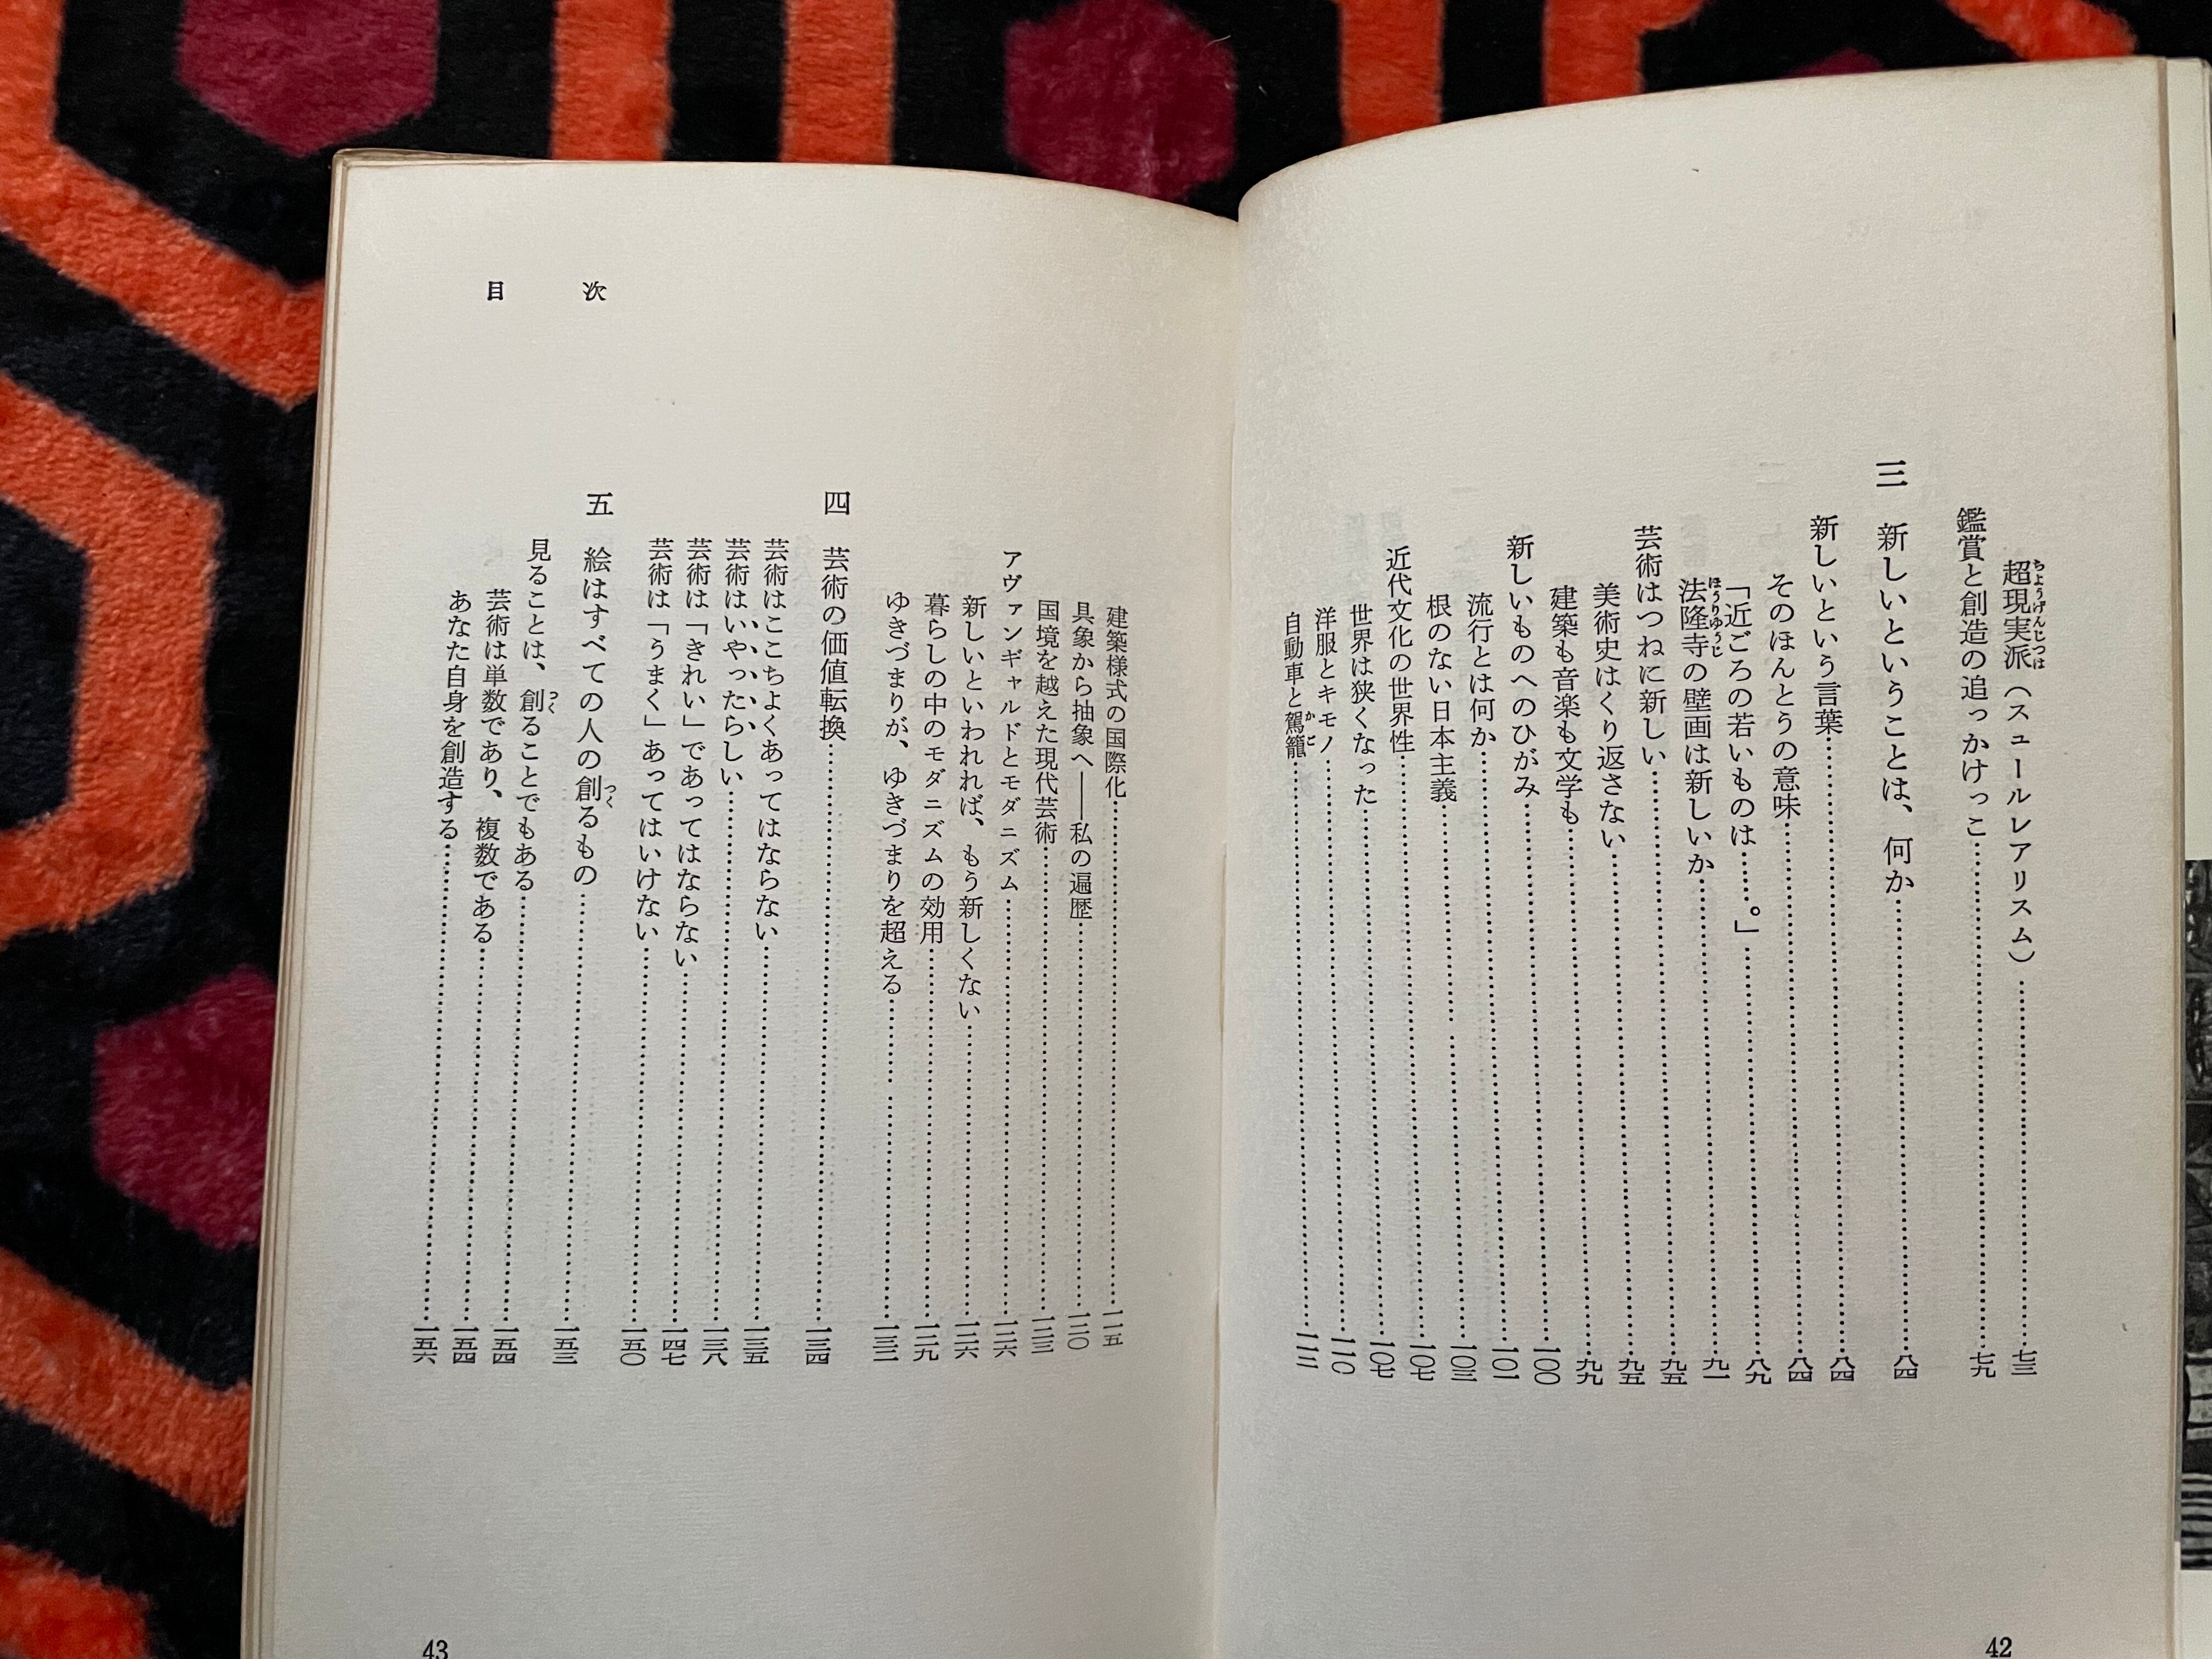 超現実派（スュールレアリスム）……七三
鑑賞と創造の追っかけっこ……七九
三 新しいということは、何か……八四
新しいという言葉……八四
そのほんとうの意味……八四
「近ごろの若いものは……。」……八九
法隆寺の壁画は新しいか……九一
芸術はつねに新しい……九五
美術史はくり返さない……九五
建築も音楽も文学も……九九
新しいものへのひがみ……一〇〇
流行とは何か……一〇一
根のない日本主義……一〇三
近代文化の世界性……一〇七
世界は狭くなった……一〇七
洋服とキモノ……一一〇
自動車と駕籠……一一二
42
目次
建築様式の国際化……一一五
具象から抽象へ――私の遍歴……一二〇
国境を越えた現代芸術……一二三
アヴァンギャルドとモダニズム……一二六
新しいといわれれば、もう新しくない……一二六
暮らしの中のモダニズムの効用……一二九
ゆきづまりが、ゆきづまりを超える……一三二
四 芸術の価値転換……一三四
芸術はここちよくあってはならない……一三五
芸術はいやったらしい……一三八
芸術は「きれい」であってはならない……一四七
芸術は「うまく」あってはいけない……一五〇
五 絵はすべての人の創るもの……一五三
見ることは、創ることでもある……一五四
芸術は単数であり、複数である……一五四
あなた自身を創造する……一五六
43